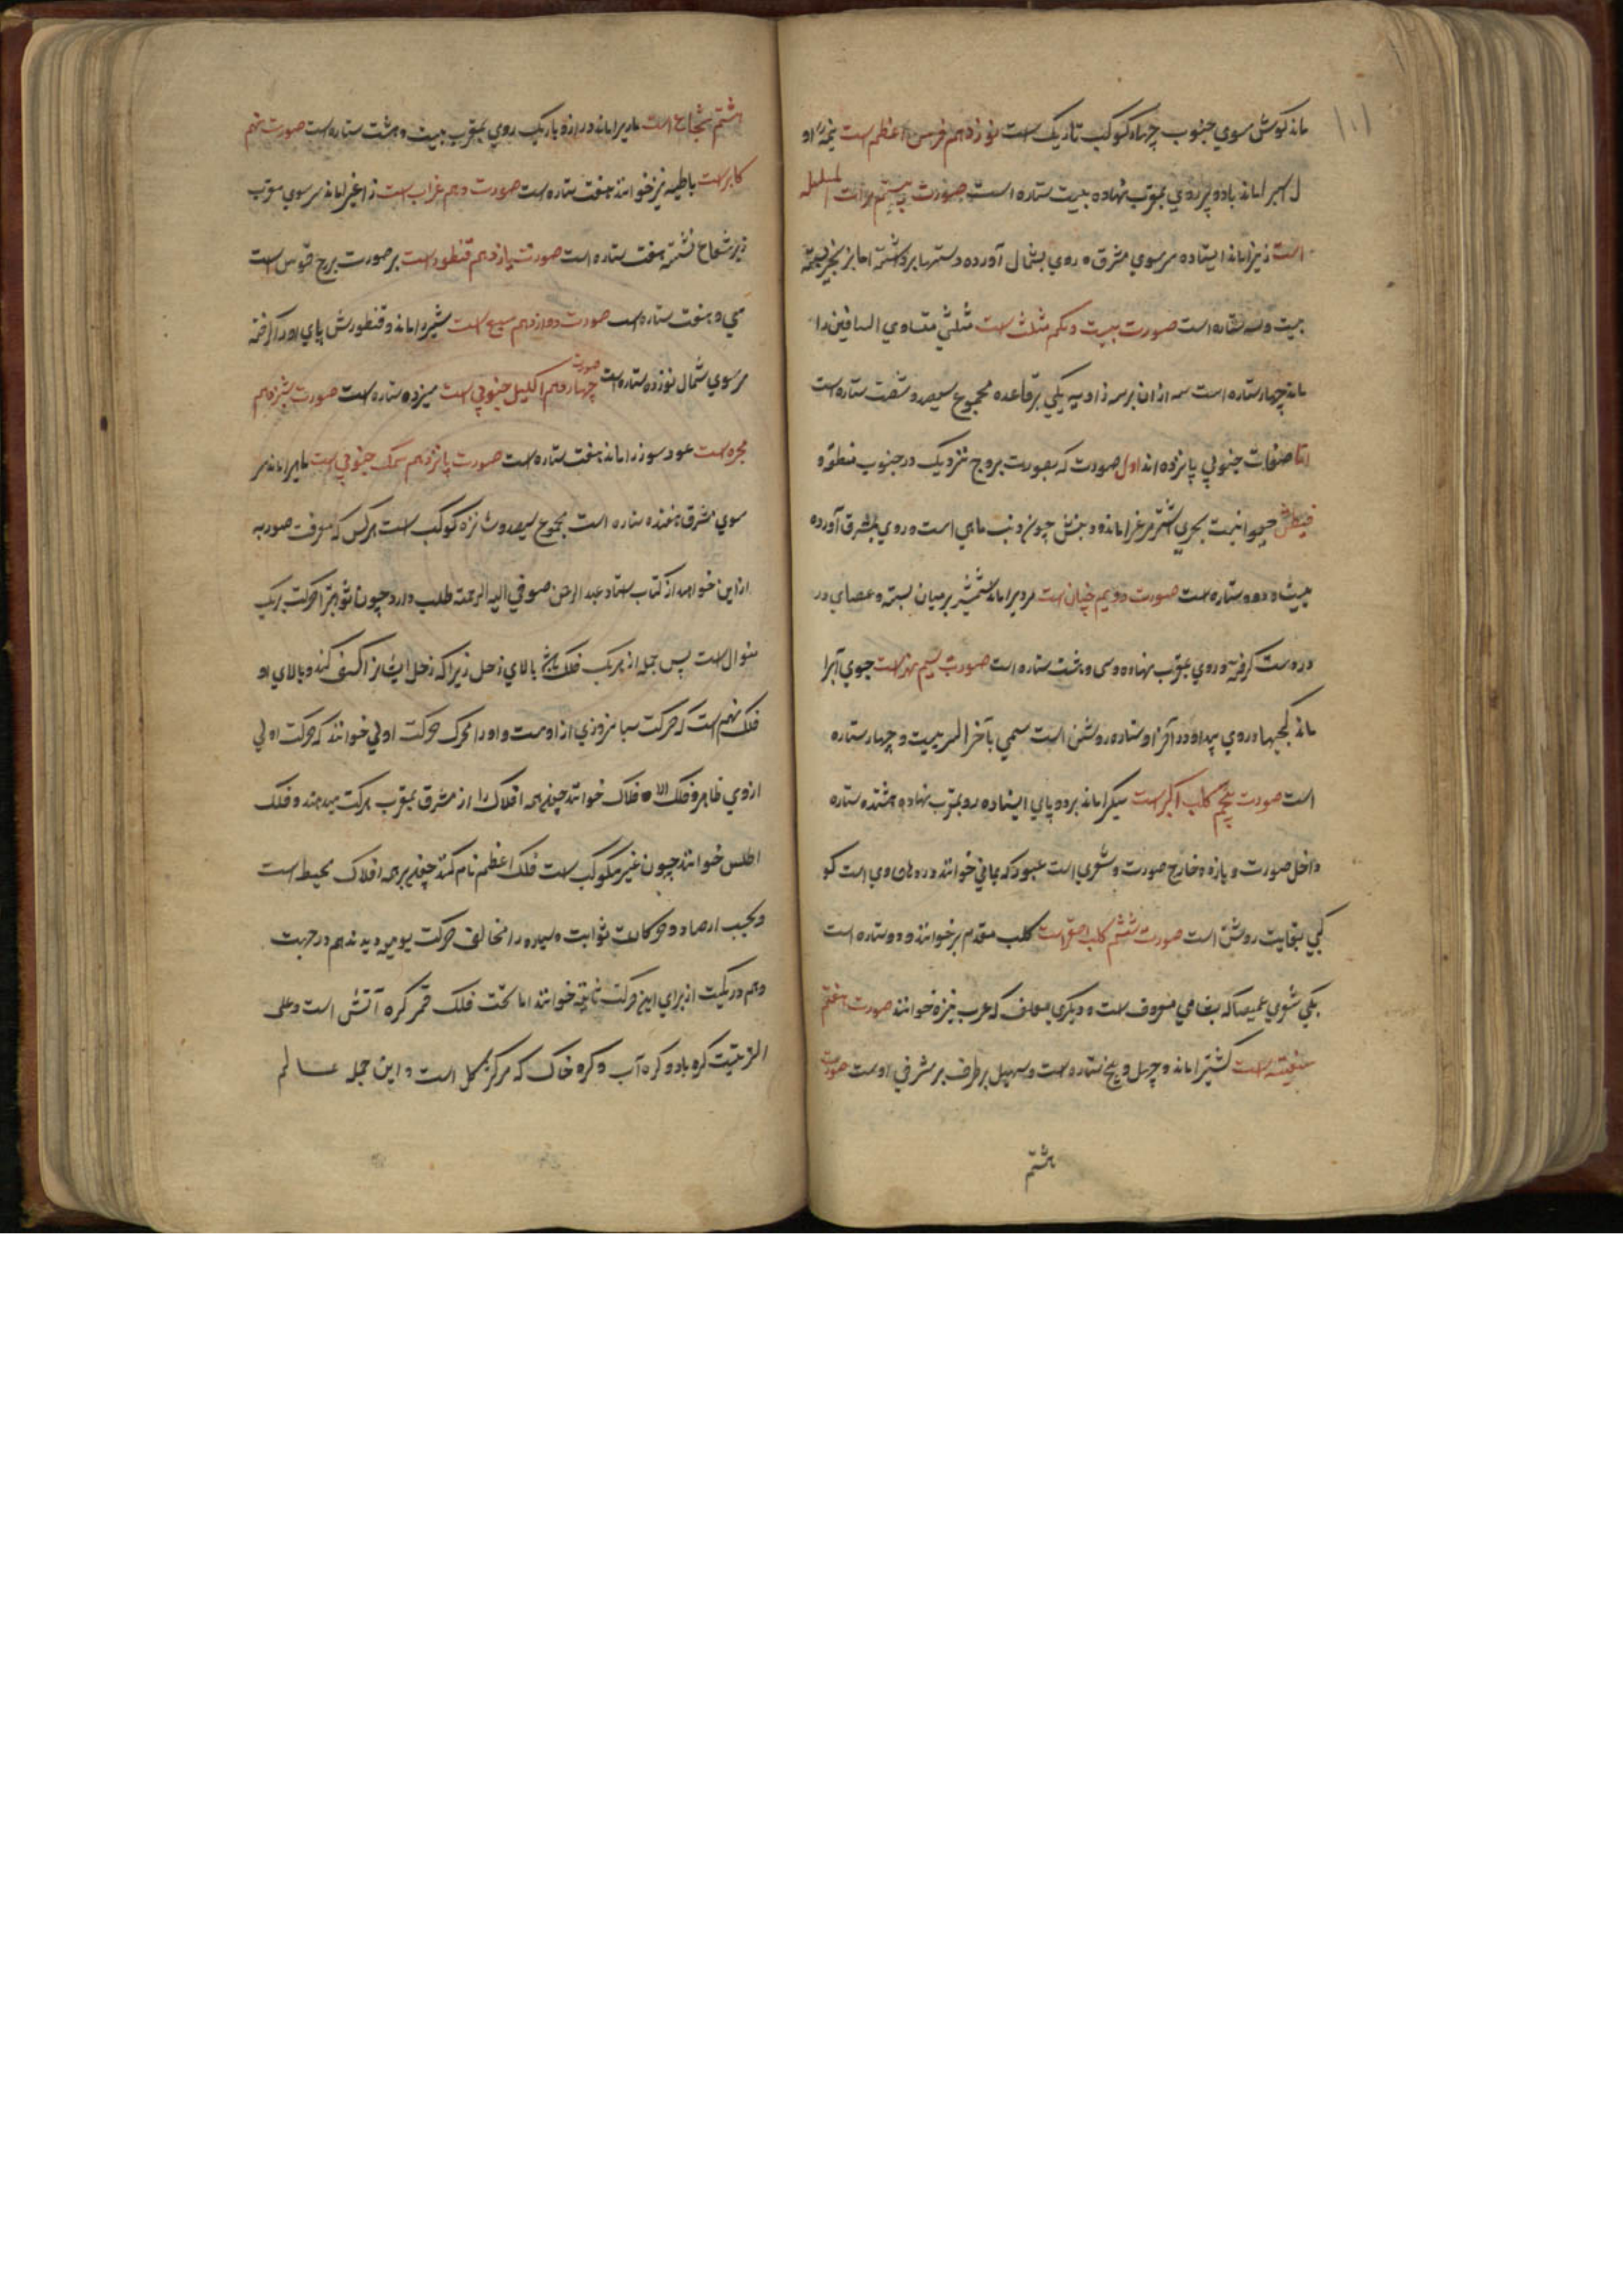 ماند کوش سوی جنوب چهار کوکب تاریک است نوزدهم فرس اعظم است او
را ماند با دو پر روی بمغرب نهاده بیست ستاره است صورت بیستم مرأت المسلسله
است زنی را ماند ایستاده سر سوی مشرق و روی بشمال آورده دستها برداشته اما بزنجیر بسته
بیست و سه ستاره است صورت بیست و یکم مثلث است مثلثی متساوی الساقین را
ماند چهار ستاره است سه از ان بر سه زاویه یکی بر قاعده مجموع سیصد و شصت ستاره است
اما صفحات جنوبی پانزده اند اول صورت که بصورت بروج نزدیک در جنوب منطقه و
قیطس حیوانیست بحری را ماند و ذنبش چون ذنب ماهی است و روی بمشرق آورده
بیست و دو ستاره است صورت دویم جبار است مردیرا ماند شمشیر بر میان بسته و عصای در
در دست کرفته و روی بمغرب نهاده و سی و هشت ستاره است صورت سیم نهر است جوی آبرا
ماند کجیها در وی پیدا و در آخر او ستاره روشن است مسمی بآخر النهر بیست و چهار ستاره
است صورت پنجم کلب اکبر است سکیرا ماند بر دو پای ایستاده رو بمغرب نهاده هشتده ستاره
داخل صورت و یازده خارج صورت و شعری است عبور که یمانی خوانند در دهان وی است کو
کبی بغایت روشن است صورت ششم کلب اصغر است کلب مقدم بر خوانند و دو ستاره است
یکی شعری غمیصا که بشامی معروف است و دیکری که عرب خوانند صورت هفتم
سفینه است کشتیرا ماند و چهل و پنج ستاره است و سهیل بر طرف شرقی اوست صورت
هشتم
هشتم شجاع است ماریرا ماند دراز و باریک روی بمغرب بیست و هشت ستاره است صورت نهم
کاس است باطیه نیز خوانند هفت ستاره است صورت دهم غراب است زاغیرا ماند سر سوی مغرب
بر شجاع نشسته هفت ستاره است صورت یازدهم قنطورس است بر صورت برج قوس است
سی و هفت ستاره است صورت دوازدهم سبع است شیر را ماند و قنطورس پای او را کرفته
سر سوی شمال نوزده ستاره است صورت چهاردهم اکلیل جنوبی است سیزده ستاره است صورت سیزدهم
مجره است عود سوز را ماند هفت ستاره است صورت پانزدهم سمک جنوبی است ماهیرا ماند سر
سوی مشرق هفده ستاره است مجموع سیصد و شانزده کوکب است هر کس که معرفت صور به
از این خواهد از کتاب استاد عبد الرحمن صوفی الیه الرحمة طلب دارد چون ثوابت را حرکت بر یک
منوال است پس جمله از بر یک فلک بالای زحل زیرا که زحل ایشانرا کسف کند و بالای او
فلک نهم است که حرکت شبانروزی از اوست و او را محرک حرکت اولی خوانند که حرکت اولی
از وی ظاهر و فلک الافلاک خوانند چون همه افلاک را از مشرق بمغرب حرکت میدهند و فلک
اطلس خوانند چون غیر مکوکب است فلک اعظم نام کنند چون بر همه افلاک محیط است
و بحسب ارصاد و حرکات ثوابت و سیاره را مخالف حرکت یومیه دیدند هم در جهت
و هم در کمیت از برای این حرکت ثانیه خوانند اما تحت فلک قمر کره آتش است و علی
الترتیب کره باد و کره آب و کره خاک که مرکز کل است و این جمله عالم